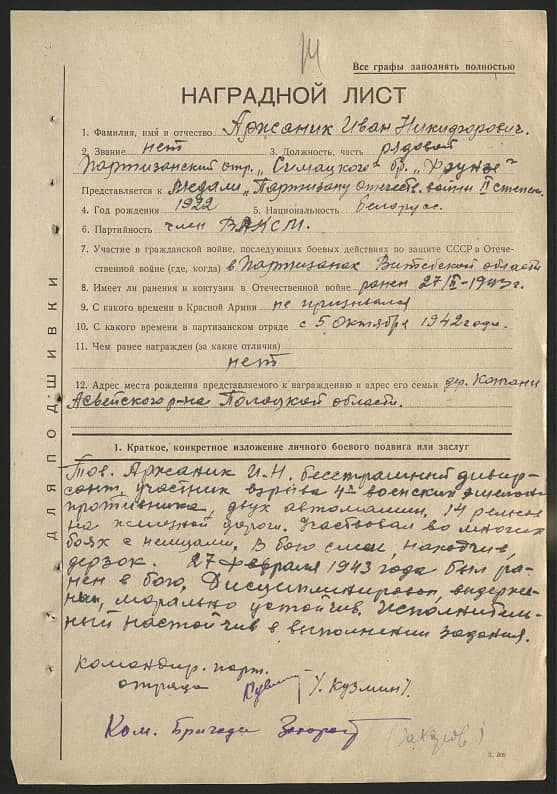 Все графы заполнять полностью
НАГРАДНОЙ ЛИСТ
1. Фамилия, имя и отчество Аржаник Иван Никифорович.
2. Звание нет 3. Должность, часть рядовой
партизанский отр. „Симацкого" бр. „Фрунзе"
Представляется к медали „Партизану Отечеств. войны II степени
4. Год рождения 1922 5. Национальность белорус.
6. Партийность член ВЛКСМ.
7. Участие в гражданской войне, последующих боевых действиях по защите СССР в Отече-
ственной войне (где, когда) в партизанах Витебской области
8. Имеет ли ранения и контузии в Отечественной войне ранен 27/II-1943г.
9. С какого времени в Красной Армии не призывался
10. С какого времени в партизанском отряде с 5 октября 1942 года.
11. Чем ранее награжден (за какие отличия)
нет
12. Адрес места рождения представляемого к награждению и адрес его семьи дер.
Асвейского р-на Полоцкой области.
ДЛЯ ПОДШИВКИ
1. Краткое, конкретное изложение личного боевого подвига или заслуг
Тов. Аржаник И.Н. бесстрашный дивер-
сант, участник взрыва 4х воинских эшелонов
противника, двух автомашин, 14 рельс
на железной дороги. Участвовал во многих
боях с немцами. В бою смел, находчив,
дерзок. 27 февраля 1943 года был ра-
нен в бою. Дисциплинирован, выдержан-
ный, морально устойчив. Исполнитель-
ный настойчив в выполнении задания.
Командир парт.
отряда /. Кузмин/.
Ком. Бригады
(Захаров)